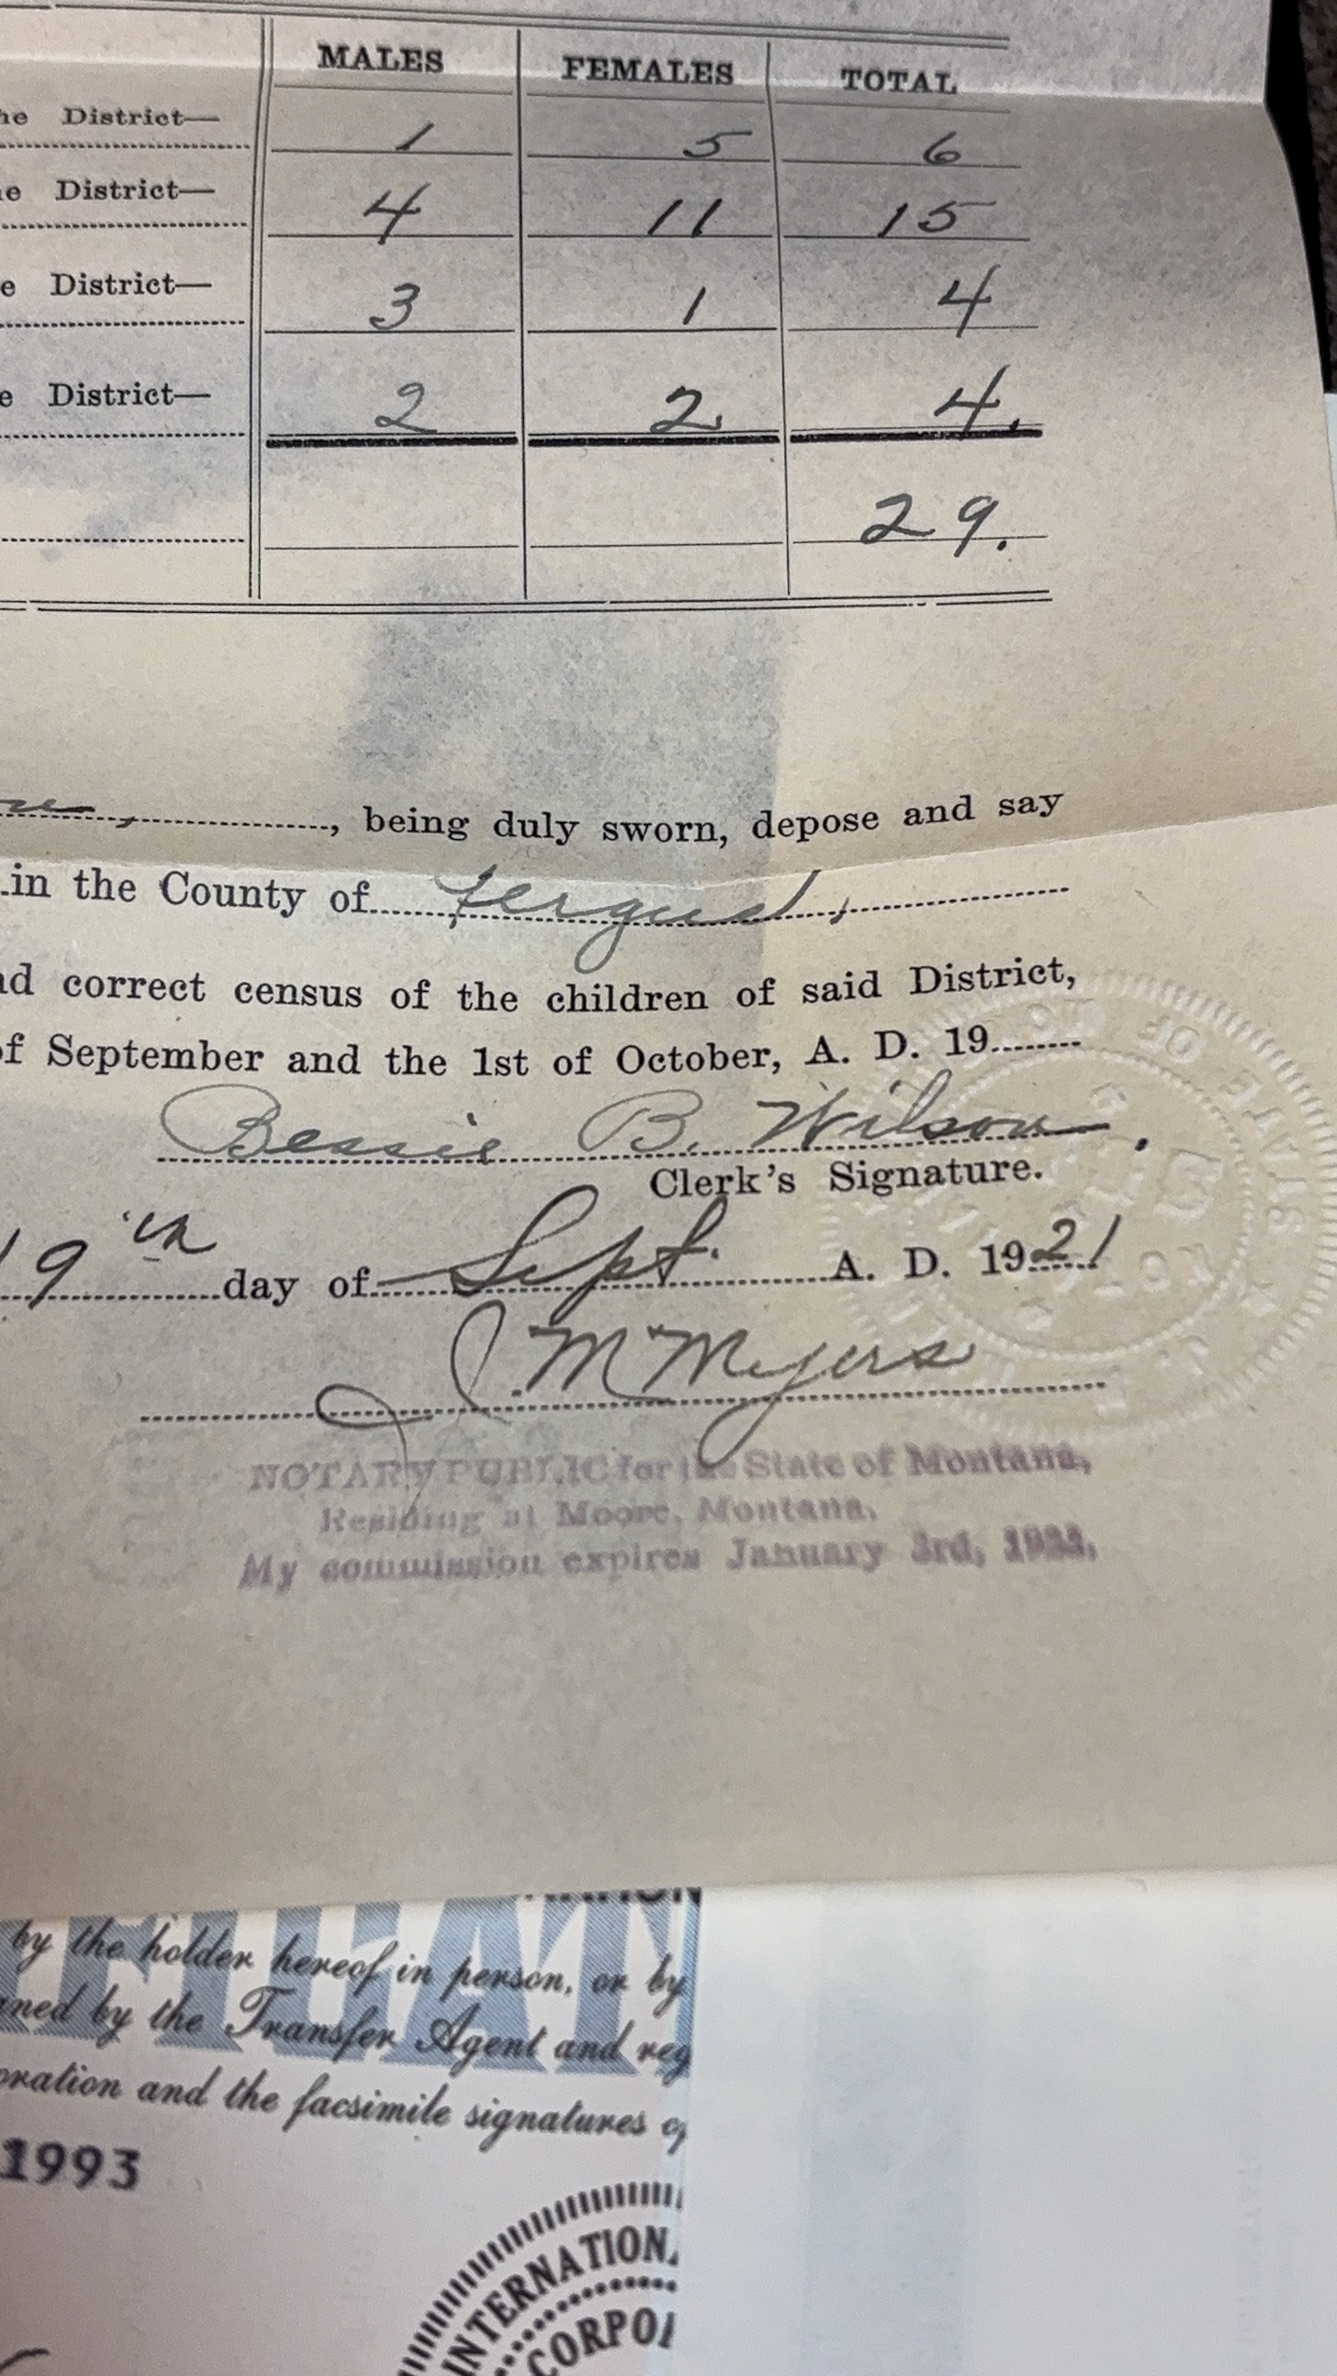 MALES FEMALES TOTAL
he District— 1 5 6
e District— 4 11 15
e District— 3 1 4
e District— 2 2. 4.
29.
, being duly sworn, depose and say
in the County of Fergus,
nd correct census of the children of said District,
of September and the 1st of October, A. D. 19
Bessie B. Wilson.
Clerk's Signature.
19th day of Sept. A. D. 1921
J. M Myers
NOTARY PUBLIC for the State of Montana,
Residing at Moore, Montana.
My commission expires January 3rd,
STATE OF
by the holder hereof in person, or by
ned by the Transfer Agent and reg
oration and the facsimile signatures of
1993
INTERNATIONA
CORPO